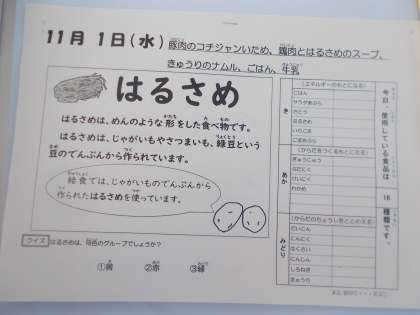 11月 1日(水) 豚肉のコチジャンいため、鶏肉とはるさめのスープ、
きゅうりのナムル、ごはん、牛乳
はるさめ
はるさめは、めんのような形をした食べ物です。
はるさめは、じゃがいもやさつまいも、緑豆という
豆のでんぷんから作られています。
給食では、じゃがいものでんぷんから
作られたはるさめを使っています。
クイズ はるさめは、何色のグループでしょうか?
①黄 ②赤 ③緑
今日、使用している食品は 16 種類です。
き
(エネルギーのもとになる)
ごはん
サラダあぶら
さとう
はるさめ
ごまあぶら
あか
(からだをつくるもとになる)
ぎゅうにゅう
ぶたにく
けいにく
わかめ
みどり
(からだのちょうしをととのえる)
だいこん
にんじん
はくさい
にんにく
しろねぎ
きゅうり